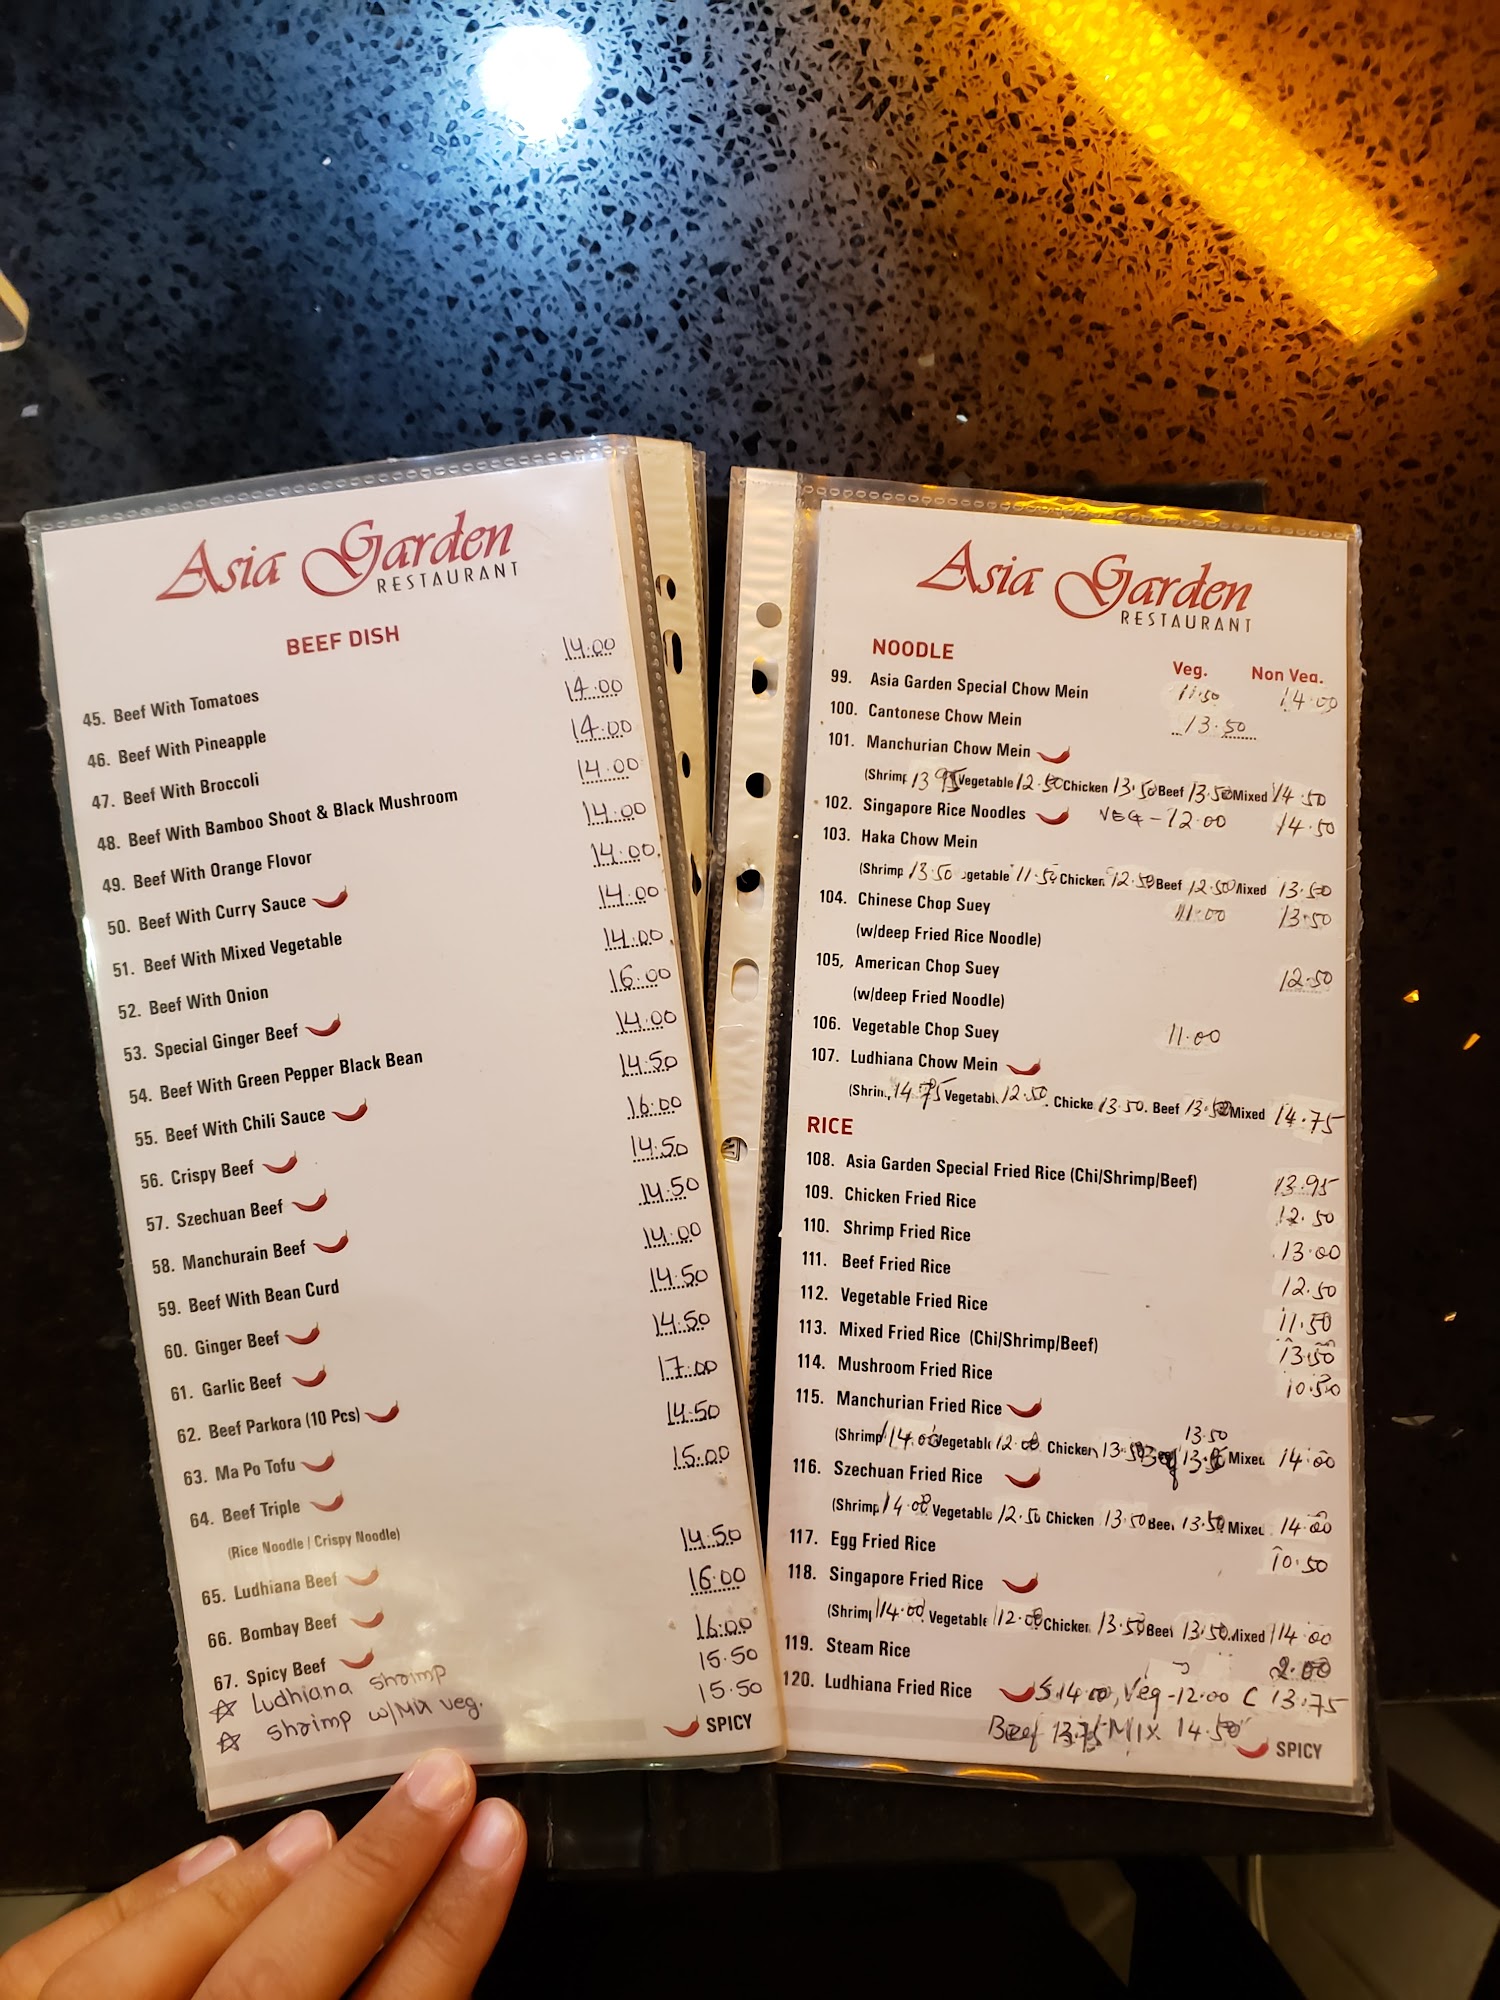 Asia Garden
RESTAURANT
BEEF DISH
45. Beef With Tomatoes 14.00
46. Beef With Pineapple 14.00
47. Beef With Broccoli 14.00
48. Beef With Bamboo Shoot & Black Mushroom 14.00
49. Beef With Orange Flovor 14.00
50. Beef With Curry Sauce 14.00
51. Beef With Mixed Vegetable 14.00
52. Beef With Onion 14.00
53. Special Ginger Beef 16.00
54. Beef With Green Pepper Black Bean 14.00
55. Beef With Chili Sauce 14.50
56. Crispy Beef 16.00
57. Szechuan Beef 14.50
58. Manchurain Beef 14.50
59. Beef With Bean Curd 14.00
60. Ginger Beef 14.50
61. Garlic Beef 14.50
62. Beef Parkora (10 Pcs) 17.00
63. Ma Po Tofu 14.50
64. Beef Triple 15.00
(Rice Noodle | Crispy Noodle)
65. Ludhiana Beef 14.50
66. Bombay Beef 16.00
67. Spicy Beef 16.00
☆ Ludhiana shrimp 15.50
☆ shrimp w/Mix veg. 15.50
SPICY
Asia Garden
RESTAURANT
NOODLE Veg. Non Veg.
99. Asia Garden Special Chow Mein 11.50 14.00
100. Cantonese Chow Mein 13.50
101. Manchurian Chow Mein
(Shrimp 13.95 Vegetable 12.50 Chicken 13.50 Beef 13.50 Mixed 14.50
102. Singapore Rice Noodles VEG - 12.00 14.50
103. Haka Chow Mein
(Shrimp 13.50 getable 11.50 Chicken 12.50 Beef 12.50 Mixed 13.50
104. Chinese Chop Suey 11.00 13.50
(w/deep Fried Rice Noodle)
105, American Chop Suey 12.50
(w/deep Fried Noodle)
106. Vegetable Chop Suey 11.00
107. Ludhiana Chow Mein
(Shrim, 14.75 Vegetabl 12.50. Chicke 13.50. Beef 13.50 Mixed 14.75
RICE
108. Asia Garden Special Fried Rice (Chi/Shrimp/Beef) 13.95
109. Chicken Fried Rice 12.50
110. Shrimp Fried Rice 13.00
111. Beef Fried Rice 12.50
112. Vegetable Fried Rice 11.50
113. Mixed Fried Rice (Chi/Shrimp/Beef) 13.50
114. Mushroom Fried Rice 10.50
115. Manchurian Fried Rice
13.50
(Shrimp 14.00 Vegetable 12.00 Chicken 13.50 Mixed 14.00
116. Szechuan Fried Rice
(Shrimp 14.00 Vegetable 12.50 Chicken 13.50 Beef 13.50 Mixed 14.00
117. Egg Fried Rice 10.50
118. Singapore Fried Rice
(Shrimp 14.00 Vegetable 12.00 Chicken 13.50 Beef 13.50 Mixed 14.00
119. Steam Rice 2.00
120. Ludhiana Fried Rice S 14.00, Veg - 12.00 C 13.75
Beef 13.75 MIX 14.50
SPICY